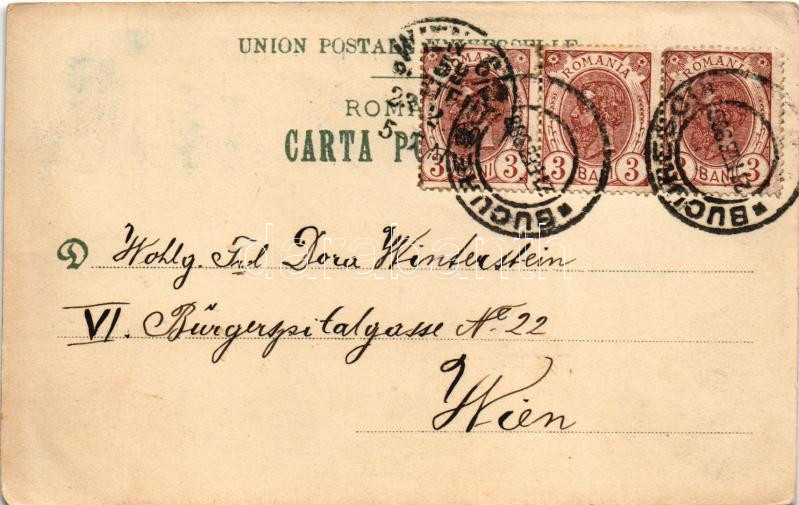 UNION POSTALE UNIVERSELLE
ROMANIA ROMANIA ROMANIA
CARTA
3 3 3 BANI 3 BANI 3
BUCURESCI BUCURESCI
Wohlg. Frl Dora Winterstein
VI. Bürgerspitalgasse No. 22
Wien
darabanth.com